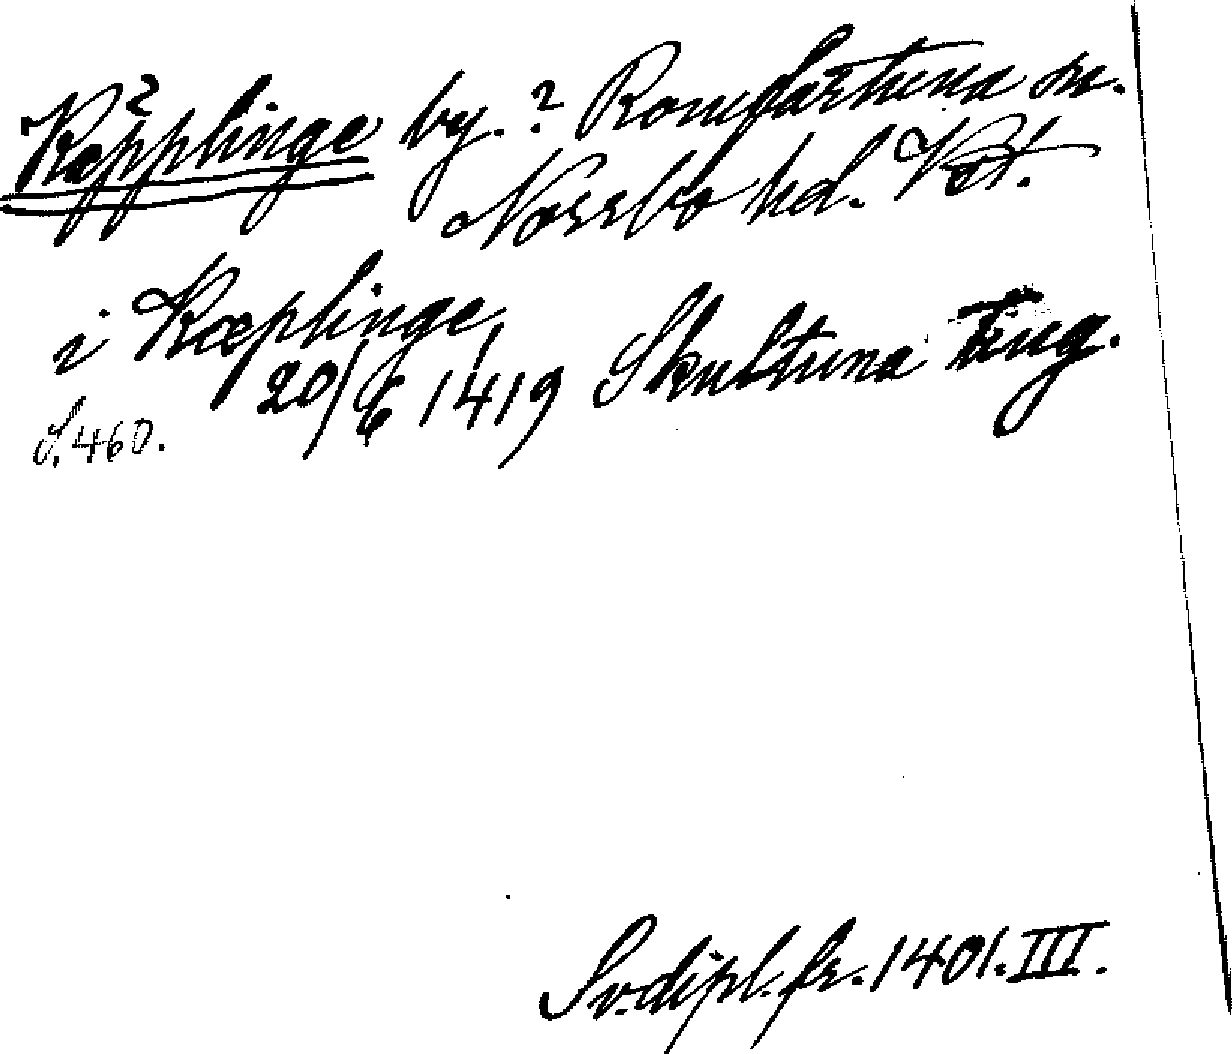 Käpplinge by. ? Romfartuna sn.
Norrbo hd. Vstm.
i Kæplinge
20/6 1419 Skultuna ting.
S. 460.
Sv.dipl.fr. 1401. III.